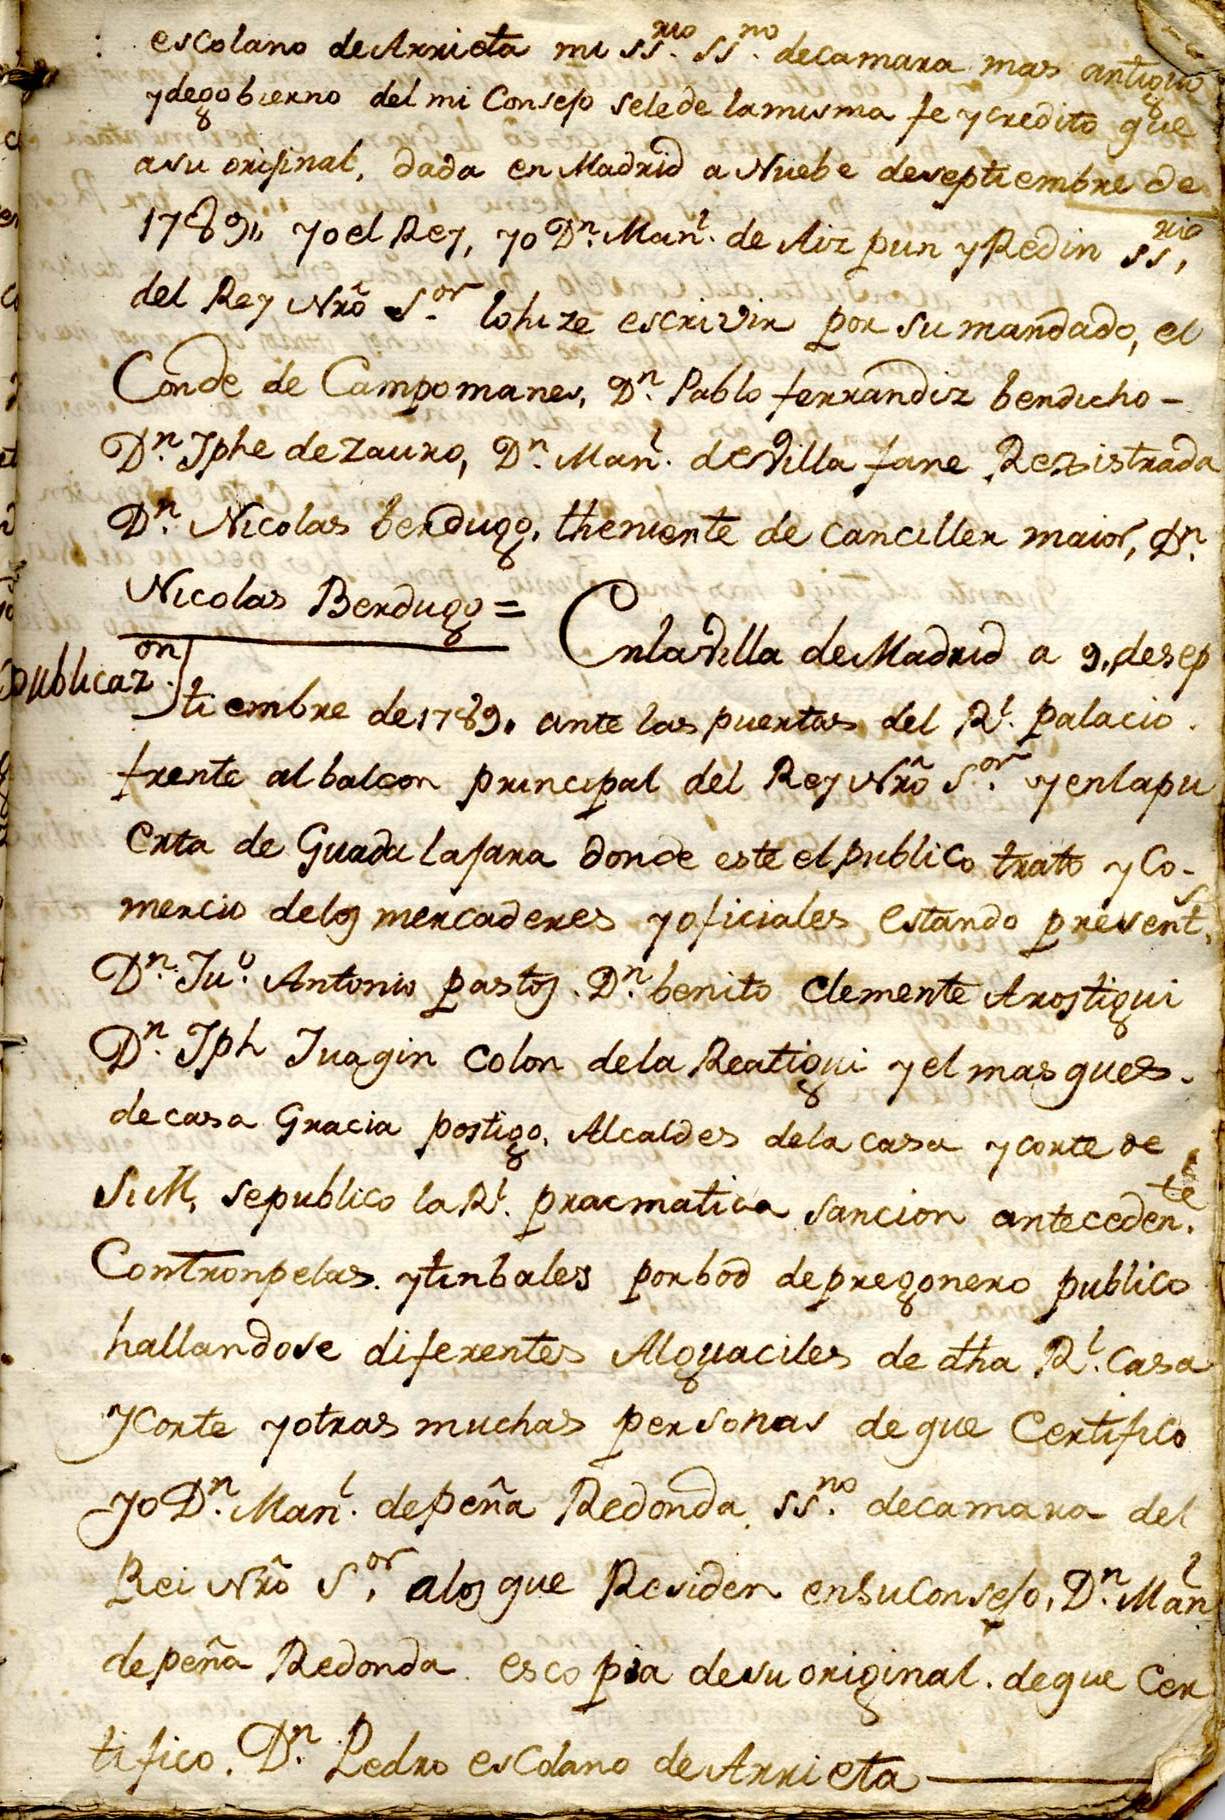 escolano de Arrieta mi ssrio. ssno. de camara mas antiguo
y de gobierno del mi Consejo se le de la misma fe y credito que
a su original, dada en Madrid a Nuebe de septiembre de
1789,, yo el Rey, yo Dn. Manl. de Aizpun y Redin ssrio,
del Rey Nrõ Sor. lo hize escrivir por su mandado, el
Conde de Campomanes, Dn. Pablo ferrandiz bendicho -
Dn. Jphe de Zauro, Dn. Manl. de Villa fane Rezistrada
Dn. Nicolas berdugo, theniente de canciller maior, Dn.
Nicolas Berdugo = En la Villa de Madrid a 9, de sep
publicazon.
tiembre de 1789. ante las puertas del Rl. palacio.
frente al balcon principal del Rey Nrõ Sor. y en la pu
erta de Guadalajara donde este el publico trato y Co-
mercio de los mercaderes y oficiales estando presents,
Dn. Juo. Antonio pastos. Dn. benito Clemente Arostigui
Dn. Jph Juaqin Colon de la Reatiqui y el masques.
de casa Gracia postigo, Alcaldes de la casa y corte de
S.M, se publico la Rl. pracmatica sancion antecedente.
Con tronpetas. y tinbales por bod de pregonero publico
hallandose diferentes Alguaciles de dha Rl. Casa
y Corte y otras muchas personas de que Certifico
yo Dn. Manl. de peña Redonda ssno. de camara del
Rei Nrõ Sor, a los que Residen en su Consejo, Dn. Manl
de peña Redonda. es copia de su original. de que Cer
tifico. Dn. Pedro esColano de Arrieta